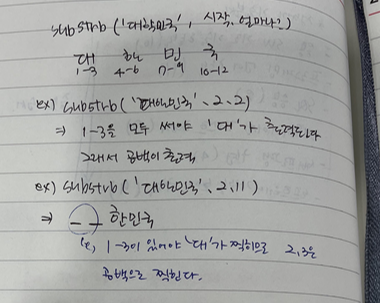 substrb('대한민국', 시작, 얼마나?)
대 한 민 국
1-3 4-6 7-9 10-12
ex) substrb('대한민국', 2, 2)
⇒ 1-3을 모두 써야 '대'가 출력된다
그래서 공백이 출력
ex) substrb('대한민국', 2, 11)
⇒ _ _ 한민국
1-3이 있어야 '대'가 찍히므로 2,3은
공백으로 찍힌다.